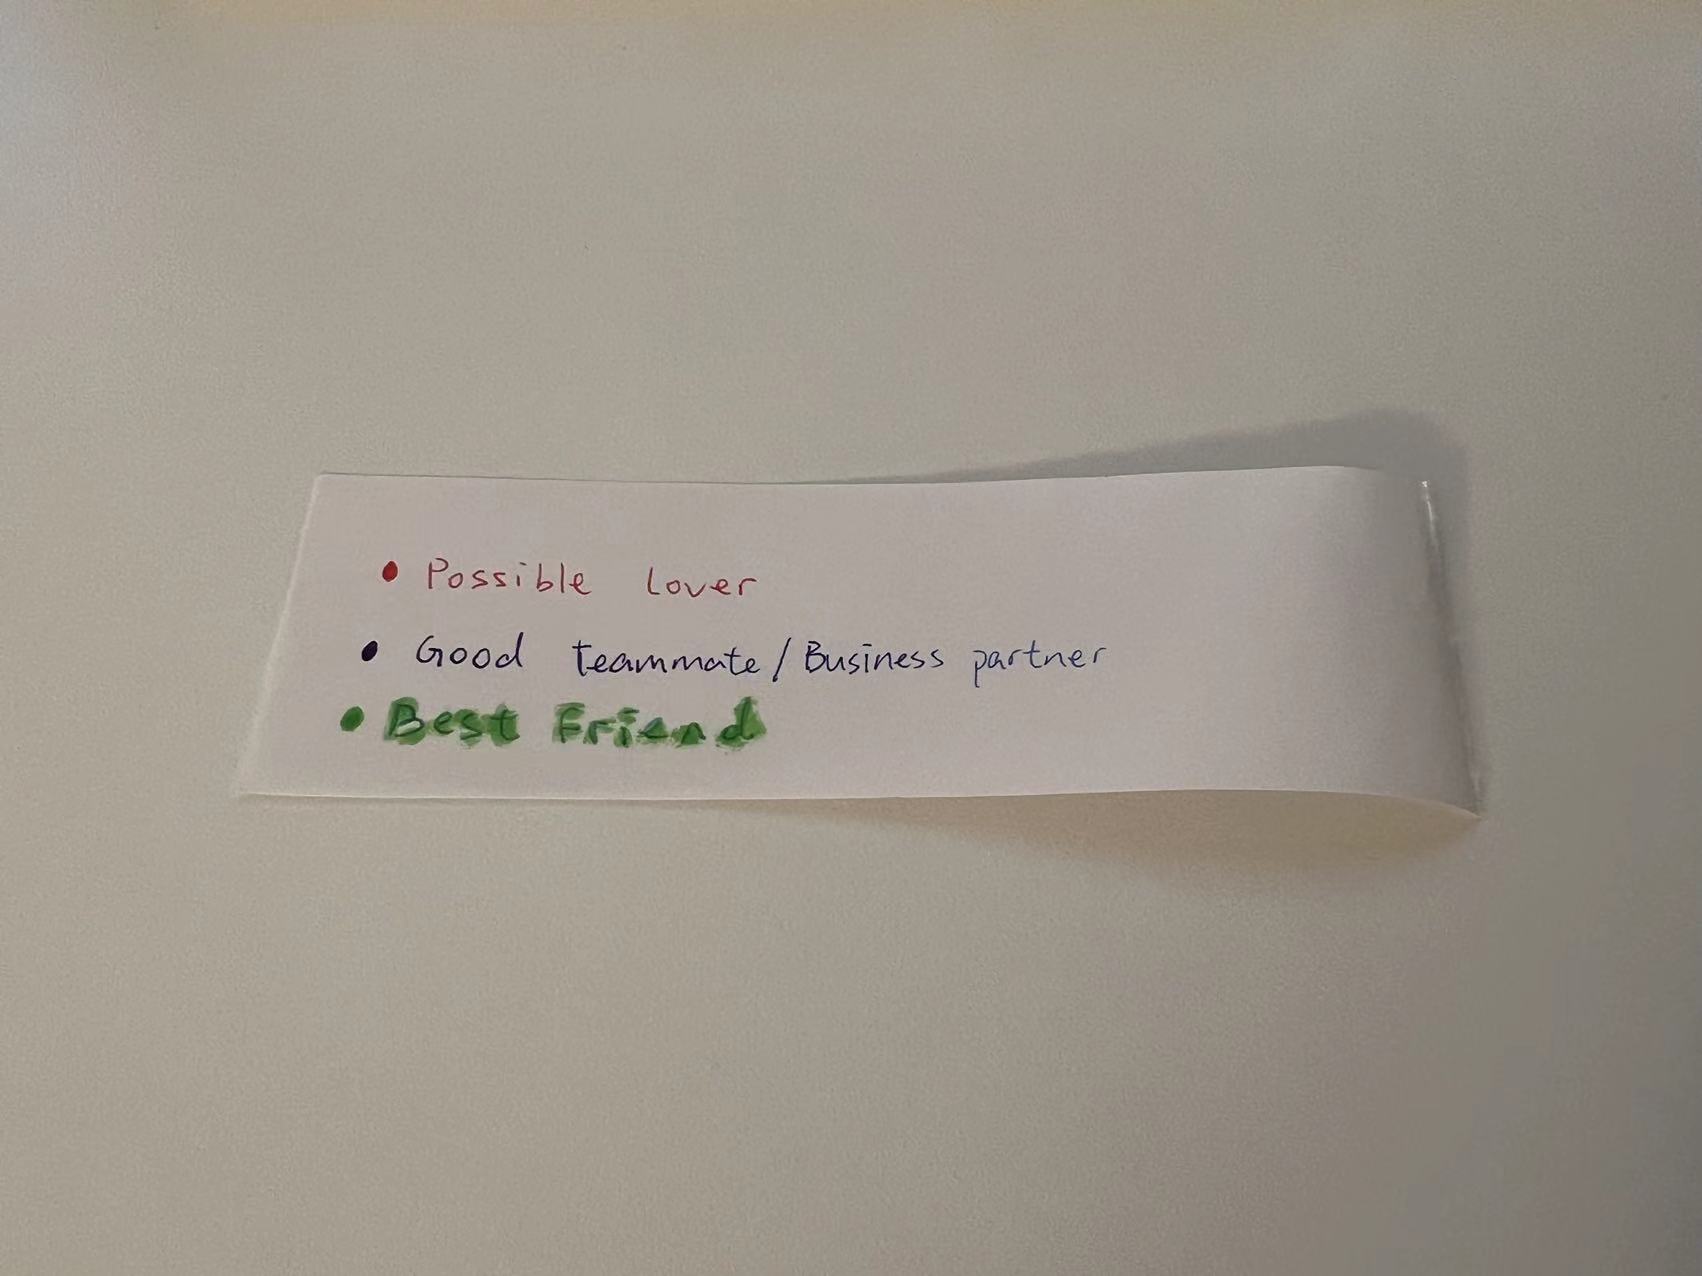 • Possible lover
• Good teammate/Business partner
• Best Friend